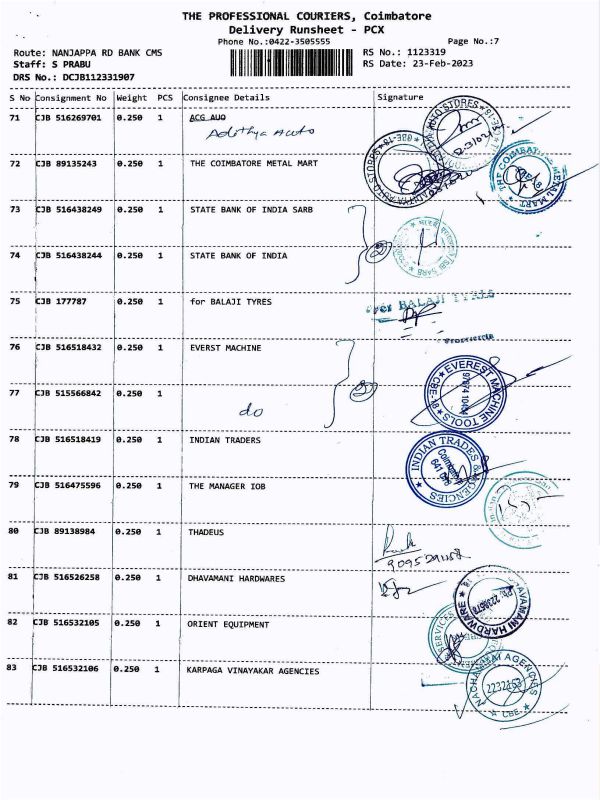 THE PROFESSIONAL COURIERS, Coimbatore
Delivery Runsheet - PCX
Phone No.:0422-3505555
Page No.:7
Route: NANJAPPA RD BANK CMS
RS No.: 1123319
Staff: S PRABU
RS Date: 23-Feb-2023
DRS No.: DCJB112331907
S No Consignment No Weight PCS Consignee Details Signature
71 CJB 516269701 0.250 1 ACG AUO
Adithya Auto
72 CJB 89135243 0.250 1 THE COIMBATORE METAL MART
73 CJB 516438249 0.250 1 STATE BANK OF INDIA SARB
74 CJB 516438244 0.250 1 STATE BANK OF INDIA
75 CJB 177787 0.250 1 for BALAJI TYRES
For BALAJI TYRES
76 CJB 516518432 0.250 1 EVERST MACHINE
EVEREST MACHINE TOOLS
CBE-18
77 CJB 515566842 0.250 1
do
78 CJB 516518419 0.250 1 INDIAN TRADERS
INDIAN TRADES & AGENCIES
Coimbatore
641 018
79 CJB 516475596 0.250 1 THE MANAGER IOB
80 CJB 89138984 0.250 1 THADEUS
81 CJB 516526258 0.250 1 DHAVAMANI HARDWARES
DHAVAMANI HARDWARE
82 CJB 516532105 0.250 1 ORIENT EQUIPMENT
83 CJB 516532106 0.250 1 KARPAGA VINAYAKAR AGENCIES
NACHAMMAI AGENCIES
2232163
CBE